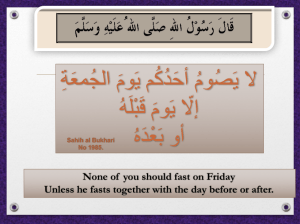 قَالَ رَسُوْلُ اللهِ صَلَّى اللهُ عَلَيْهِ وَسَلَّمَ
لا يَصُومُ أحَدُكُم يَومَ الجُمعَةِ
إلّا يَومَ قَبْلَهُ
أو بَعْدَهُ
Sahih al Bukhari
No 1985.
None of you should fast on Friday
Unless he fasts together with the day before or after.